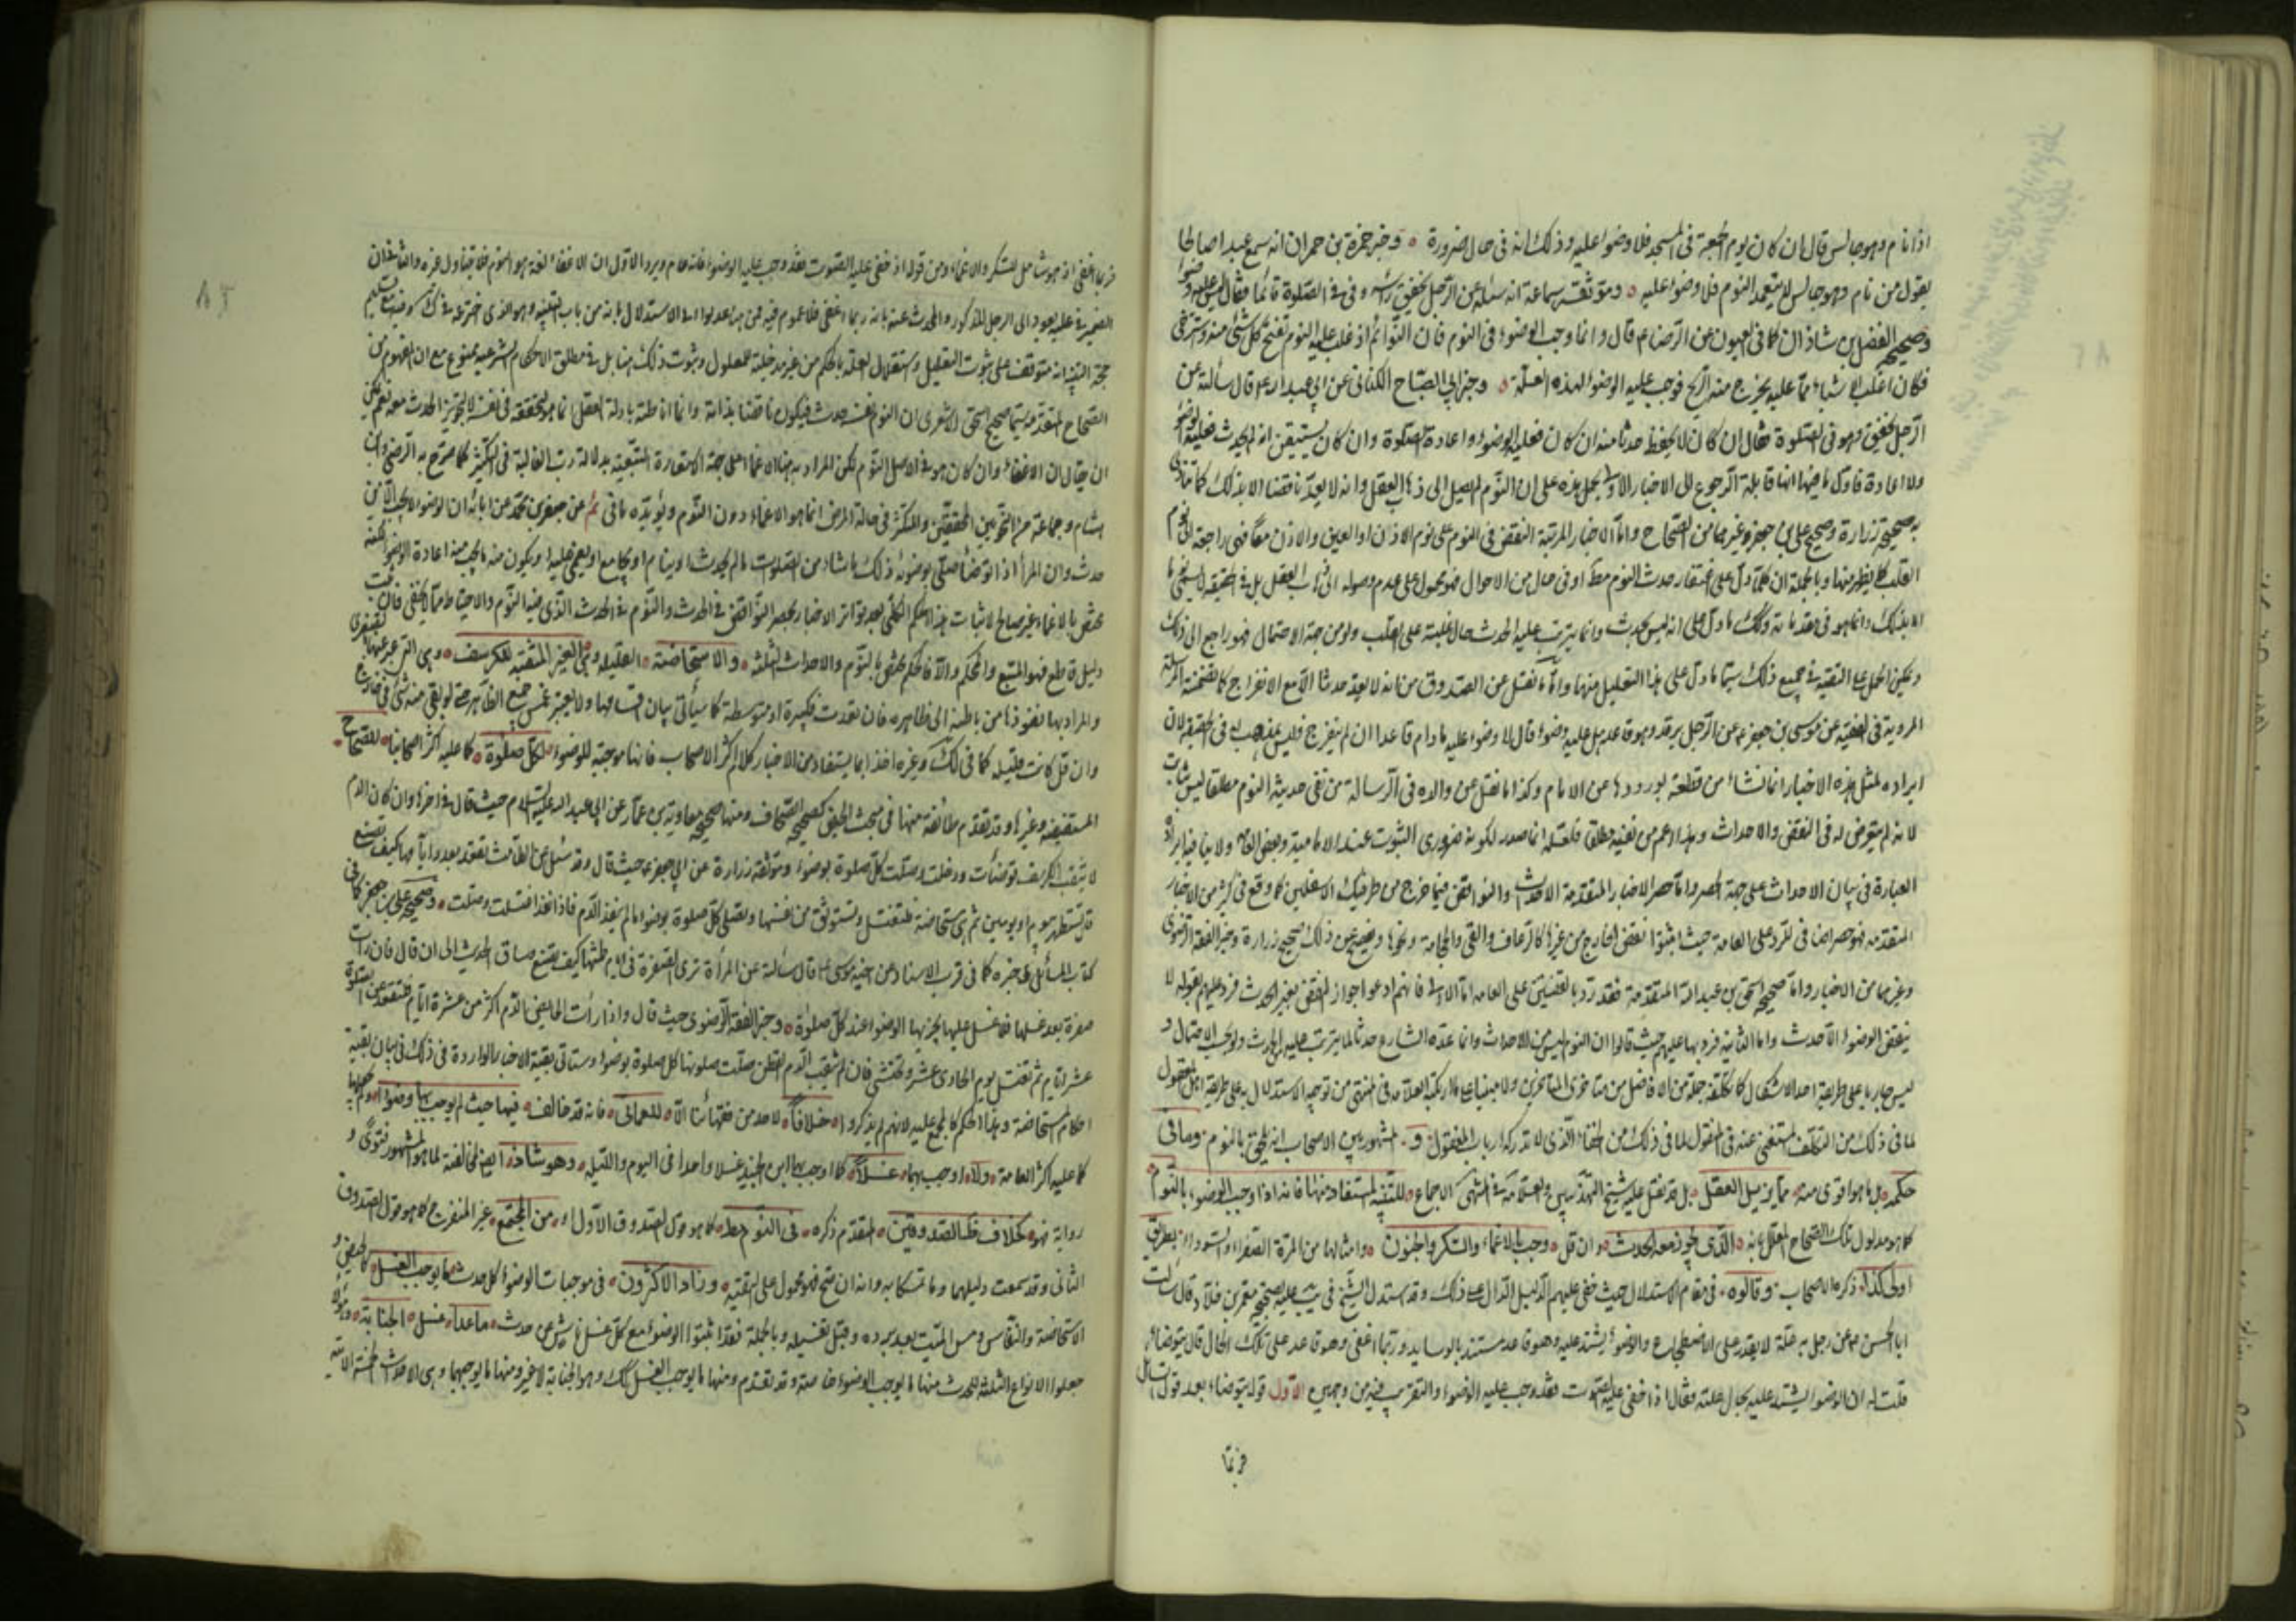 اذا نام وهو جالس قال ان كان يوم الجمعة فى المسجد فلا وضوء عليه وذلك انه فى حال ضرورة وخبر حمزة بن حمران انه سمع عبدا صالحا
يقول من نام وهو جالس لا يتعمد النوم فلا وضوء عليه وموثقة سماعة انه سئله عن الرجل يخفق راسه وهو فى الصلوة قائما فقال ليس عليه وضوء
وصحيح الفضل بن شاذان كما فى العيون عن الرضا ع قال وانما وجب الوضوء فى النوم فان النوائم اذا غلب عليه النوم تفتح كل شئ منه واسترخى
فكان اغلب الاشياء مما عليه يخرج منه الريح فوجب عليه الوضوء لهذه العلة وخبر ابي الصباح الكنانى عن ابي عبد الله ع قال سألته عن
الرجل يخفق وهو فى الصلوة فقال ان كان لا يحفظ حدثا منه ان كان فعليه الوضوء واعادة الصلوة وان كان يستيقن انه لم يحدث فليس عليه وضوء
ولا اعادة قابلة الرجوع الى الاخبار الاول بحمل هذه على ان النوم لم يصل الى ذهاب العقل وانه لا يعد ناقضا الا بذلك
صحيحة زرارة وصحيح على بن جعفر وغيرهما من الصحاح واما الاخبار المرتبة النقض فى النوم على نوم الاذن او العين والاذن معا فهى راجعة الى نوم
القلب كما يظهر منها وبالجملة ان كلما دل على اغتفار حدث النوم مط او فى حال من الاحوال فهو محمول على عدم وصوله الى ذهاب العقل بل فى الحقيقة
وانما هو فى مقدماته وكك ما دل على انه ليس بحدث وانما يترتب عليه الحدث حال غلبته على القلب ولو من جهة الاحتمال فهو راجع الى ذلك
ويمكن الحمل على التقية فى جميع ذلك سيما ما دل على هذا التعليل منها واما ما نقل عن الصدوق من انه لا يعد حدثا الا مع الانفراج كما تضمنته المرسلة
المروية فى الفقيه عن موسى بن جعفر ع عن الرجل يرقد وهو قاعد هل عليه وضوء قال لا وضوء عليه ما دام قاعدا ان لم ينفرج فليس بمذهب له فى الحقيقة لان
ايراده لمثل هذه الاخبار انما نشاء من قطعه بورودها عن الامام وكذا ما نقل عن والده فى الرسالة من نفى حدثية النوم مطلقا ليس بثابت
لانه لم يتعرض له فى النقض والاحداث وهذا اعم من نفيه مطلقا فلعله انما صدر لكونه ضرورى الثبوت عند الامامية وبعض العامة ولا ينافيه ايراد
العبارة فى بيان الاحداث على جهة الحصر واما حصر الاخبار المتقدمة الاحداث والنواقض فيما خرج من طرفيك الاسفلين كما وقع فى كثير من الاخبار
المتقدمه فهو حصر اضافى للرد على العامة حيث اثبتوا نقض الخارج من غيرها كالرعاف والقى والحجامة ونحوها صحيح زرارة وخبر الفقه الرضوى
وغيرهما من الاخبار واما صحيحة اسحق بن عبد الله المتقدمة فقد رد بالقضيتين على العامه اما الاولى فانهم ادعوا جواز النقض بغير الحدث فرد عليهم بقوله لا
ينقض الوضوء الا حدث واما الثانية فرد بها عليهم حيث قالوا ان النوم ليس من الاحداث وانما عده الشارع حدثا لما يترتب عليه من الحدث
ليس جاريا على طريقة احد الاشكال كما تكلفه جملة من الافاضل من متاخرى المتاخرين ولا مبنيا على ما ارتكبه العلامه فى المنتهى من توجيه الاستدلال به على طريقة اهل المعقول
لما فى ذلك من التكلف المستغنى عنه فى المنقول لما فى ذلك من الخفاء الذى لا تدركه ارباب العقول و المشهور بين الاصحاب انه يلحق بالنوم وما فى
حكمه بل ما هو اقوى منه مما يزيل العقل بل قد نقل عليه شيخ التهذيب والعلامة فى المنتهى الاجماع للتنبيه المستفاد منها فانه اذا وجب الوضوء بالنوم
كما هو مدلول تلك الصحاح المعلل بانه الذى يجوز معه الحدث وان قل وجب بالاغماء والسكر والجنون وامثالها من المرة الصفراء والسوداء بطريق
اولى كذا ذكره الاصحاب وقالوه فى مقام الاستدلال حيث خفى عليهم الدليل الدال على ذلك وقد استدل الشيخ فى يب عليه بصحيحة معمر بن خلاد قال سألت
ابا الحسن ع عن رجل به علة لا يقدر على الاضطجاع والوضوء يشتد عليه وهو قاعد مستند بالوسايد وربما اغفى وهو قاعد على تلك الحال قال يتوضاء
قلت له ان الوضوء يشتد عليه بحال علته فقال اذا خفى عليه الصوت فقد وجب عليه الوضوء والتقريب فيه من وجهين الاول قوله يتوضاء بعد قول السائل
فربما
فربما اغفى اذ هو شامل للسكر والاغماء ومن قوله اذا خفى عليه الصوت فقد وجب عليه الوضوء فانه عام ويرد الاول ان الاغفاء لغة هو النوم فلا يتناول غيره والثانى ان
الضمير فى عليه يعود الى الرجل المذكور والمحدث عنه بانه ربما اغفى فلا عموم فيه الاستدلال بانه من باب التنبيه وهو الذى
حجة التنبيه انه متوقف على ثبوت التعليل واستقلال العلة بالحكم من غير مدخلية للمعلول وثبوت ذلك هنا بل فى مطلق الاحكام الشرعيه ممنوع مع ان المفهوم من
الصحاح المتقدمة سيما صحيح اسحق الاشعرى ان النوم نفسه حدث فيكون ناقضا بذاته وانما اناطته بازالة العقل انما هو لتحققه فى نفسه لا لتجويز الحدث معه نعم يمكن
ان يقال ان الاغفاء وان كان هو فى الاصل النوم لكن المراد به هنا الاغماء على جهة الاستعارة التبعية بدلالة رب الغالبة فى التكثير كما صرح به الرضى وابن
هشام وجماعة من النحويين المحققين والمتكثر فى حالة المرض انما هو الاغماء دون النوم ويؤيده ما فى عن جعفر بن محمد عن ابائه ان الوضوء لا يجب الا من
حدث وان المرأ اذا توضأ صلى بوضوئه ذلك ما شاء من الصلوات ما لم يحدث او ينام او يجامع او يغمى عليه او يكون منه ما يجب منه اعادة الوضوء
بالاغماء غير صالح لاثبات هذا الحكم الكلى بعد تواتر الاخبار بحصر النواقض فى الحدث والنوم والاحتياط مما لا يخفى فان ثبت
دليل قاطع فهو المتبع والمحكم والا فالحكم مختص بالنوم والاحداث الثلثه والاستحاضة القليله وهى الغير المثقبة للكرسف وهى التى
والمراد بها نفوذها من باطنه الى ظاهره فان نفذت فكبيرة او متوسطة كما سيأتى بيان اقسامها ولا يعتبر غمس جميع الظاهر
وان قل كانت قليله كما فى لك وغيره اخذا بما يستفاد من الاخبار وكلام اكثر الاصحاب فانها موجبة للوضوء لكل صلوة كما عليه اكثر اصحابنا للصحاح
المستفيضة وغيرها وقد تقدم طائفة منها فى مبحث الحيض كصحيح الصحاف ومنها صحيحة معاوية بن عمار عن ابي عبد الله عليه السلام حيث قال فى اخرها وان كان الدم
لا يثقب الكرسف توضأت ودخلت وصلت كل صلوة بوضوء وموثقة زرارة عن ابي جعفر ع حيث قال وقد سئل عن الطامث تقعد بعدد ايامها كيف تصنع
قال تستظهر بيوم او يومين ثم هى مستحاضة فلتغتسل وتستوثق من نفسها وتصلى كل صلوة بوضوء ما لم ينفذ الدم فاذا نفذ اغتسلت وصلت وصحيح على بن جعفر كما فى
كتاب المسائل وخبره كما فى قرب الاسناد عن اخيه موسى ع قال سألته عن المرأة ترى الصفرة فى ايام طمثها كيف تصنع وساق الحديث الى ان قال فان رات
صفرة بعد غسلها فلا غسل عليها يجزيها الوضوء عند كل صلوة وخبر الفقه الرضوى حيث قال واذا رأت الحايض الدم اكثر من عشرة ايام فلتقعد عن الصلوة
عشرة ايام ثم تغتسل يوم الحادى عشر وتحتشى فان لم يثقب الدم القطن صلت صلوتها كل صلوة بوضوء وستاتى بقية الاخبار الواردة فى ذلك فى بيان بقية
احكام المستحاضة وهذا الحكم كالمجمع عليه لانهم لم يذكروا خلافا لاحد من فقهائنا الا للعمانى فانه قد خالف فيها حيث لم يوجب بها وضوءا
كما عليه اكثر العامة ولا اوجب بها غسلا كما اوجب بها ابن الجنيد غسلا واحدا فى اليوم والليله وهو شاذ لمخالفته لما هو المشهور فتوى و
رواية فهو كخلاف الصدوقين المتقدم ذكره فى النوم مط كما هو قول الصدوق الاول او من المجتمع غير المنفرج كما هو قول الصدوق
الثانى وقد سمعت دليلهما وما تمسكا به وانه ان صح فهو محمول على التقية وزاد الاكثرون فى موجبات الوضوء كل حدث يوجب الغسل كالحيض و
الاستحاضة والنفاس ومس الميت بعد برده وقبل تغسيله وبالجملة فقد اثبتوا الوضوء مع كل غسل ناش عن حدث ما عدا غسل الجنابة
جعلوا الانواع الثلثه للحدث منها ما يوجب الوضوء خاصة وقد تقدم ومنها ما يوجب الغسل كك وهو الجنابة لا غير ومنها ما يوجبهما وهى الاحداث الخمسة الاتيه